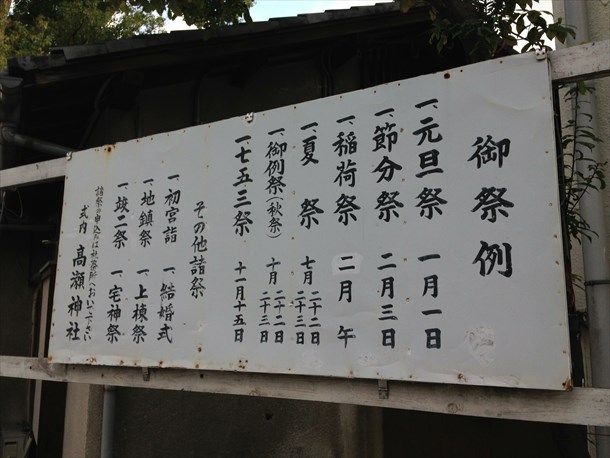 御祭例
一、元旦祭 一月一日
一、節分祭 二月三日
一、稲荷祭 二月 午
一、夏祭 七月 二十二日 二十三日
一、御例祭(秋祭) 十月 二十二日 二十三日
一、七五三祭 十一月十五日
その他諸祭
一、初宮詣 一、結婚式
一、地鎮祭 一、上棟祭
一、竣工祭 一、宅神祭
諸祭の申込みは社務所へおいで下さい
式内 高瀬神社